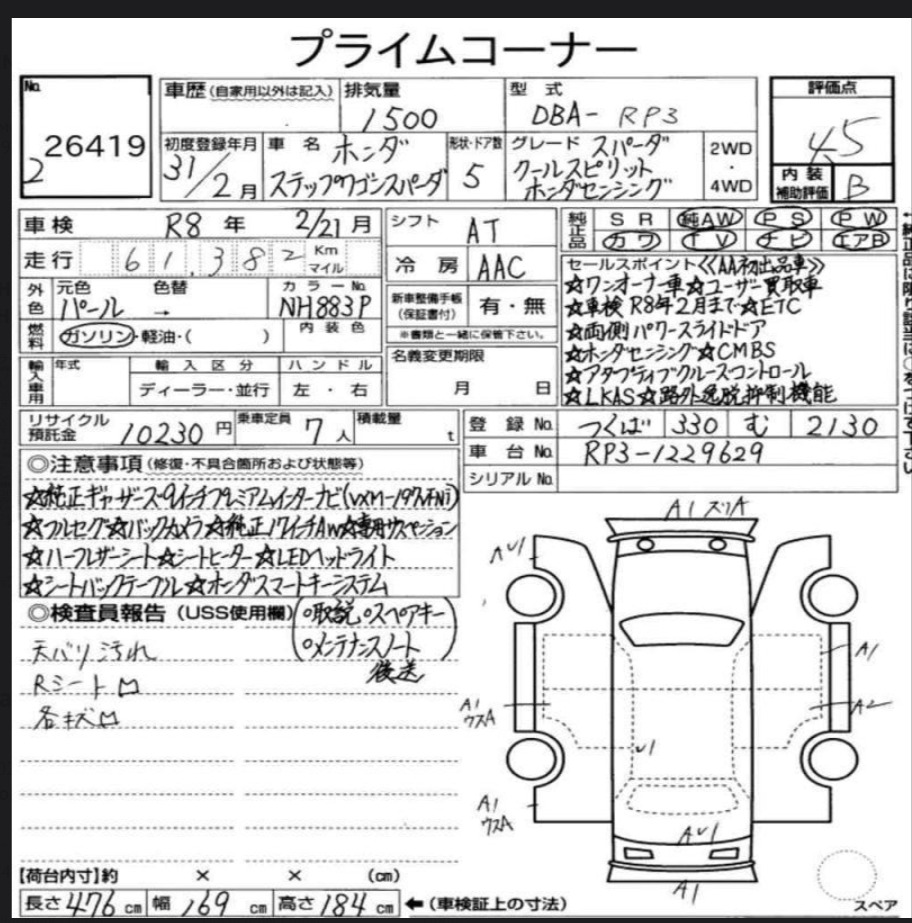 プライムコーナー
No.
26419
2
車歴 (自家用以外は記入)
排気量
1500
型式
DBA- RP3
評価点
4.5
初度登録年月
31/2月
車名
ホンダ
ステップワゴンスパーダ
形状・ドア数
5
グレード スパーダ
クールスピリット
ホンダセンシング
2WD
・
4WD
内装
補助評価
B
車検 R8年 2/21月
シフト AT
純正品
SR 純AW PS PW
カワ TV ナビ エアB
走行 61,382 Km
マイル
冷房 AAC
外色
元色 パール
色替 →
カラーNo. NH883P
新車整備手帳
(保証書付)
有・無
※書類と一緒に保管下さい。
燃料
ガソリン・軽油・( )
内装色
名義変更期限
月 日
セールスポイント《AA初出品車》
☆ワンオーナー車☆ユーザー買取車
☆車検 R8年2月まで☆ETC
☆両側パワースライドドア
☆ホンダセンシング☆CMBS
☆アダプティブクルーズコントロール
☆LKAS☆路外逸脱抑制機能
輸入車用
年式
輸入区分
ディーラー・並行
ハンドル
左・右
リサイクル
預託金
10230円
乗車定員
7人
積載量
t
登録No. つくば 330 む 2130
車台No. RP3-1229629
シリアルNo.
◎注意事項 (修復・不具合箇所および状態等)
☆純正ギャザーズ9インチプレミアムインターナビ(VXM-197VFNi)
☆フルセグ☆バックカメラ☆純正17インチAW☆専用サスペンション
☆ハーフレザーシート☆シートヒーター☆LEDヘッドライト
☆シートバックテーブル☆ホンダスマートキーシステム
◎検査員報告 (USS使用欄)
(○取説○スペアキー
○メンテナンスノート)
後送
天バリ汚れ
Rシート
各キズ
A1 スリA
AU1
A1
A2
A1
ウスA
U1
A1
ウスA
AU1
A1
スペア
【荷台内寸】約 × × (cm)
長さ 476 cm 幅 169 cm 高さ 184 cm ←(車検証上の寸法)